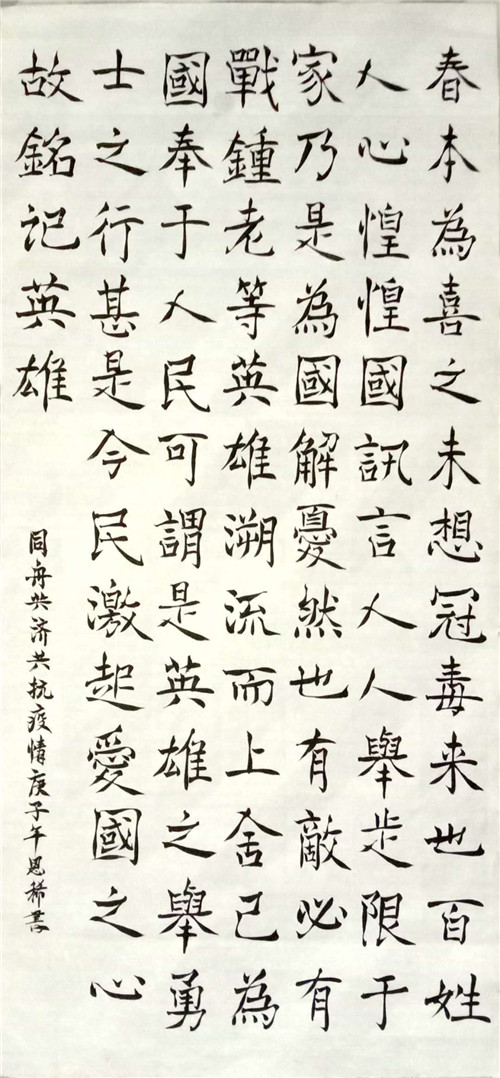 春本為喜之未想冠毒来也百姓
人心惶惶國訊言人人舉步限于
家乃是為國解憂然也有敵必有
戰鍾老等英雄溯流而上舍己為
國奉于人民可謂是英雄之舉勇
士之行甚是今民激起愛國之心
故銘記英雄
同舟共济共抗疫情庚子年恩稀書